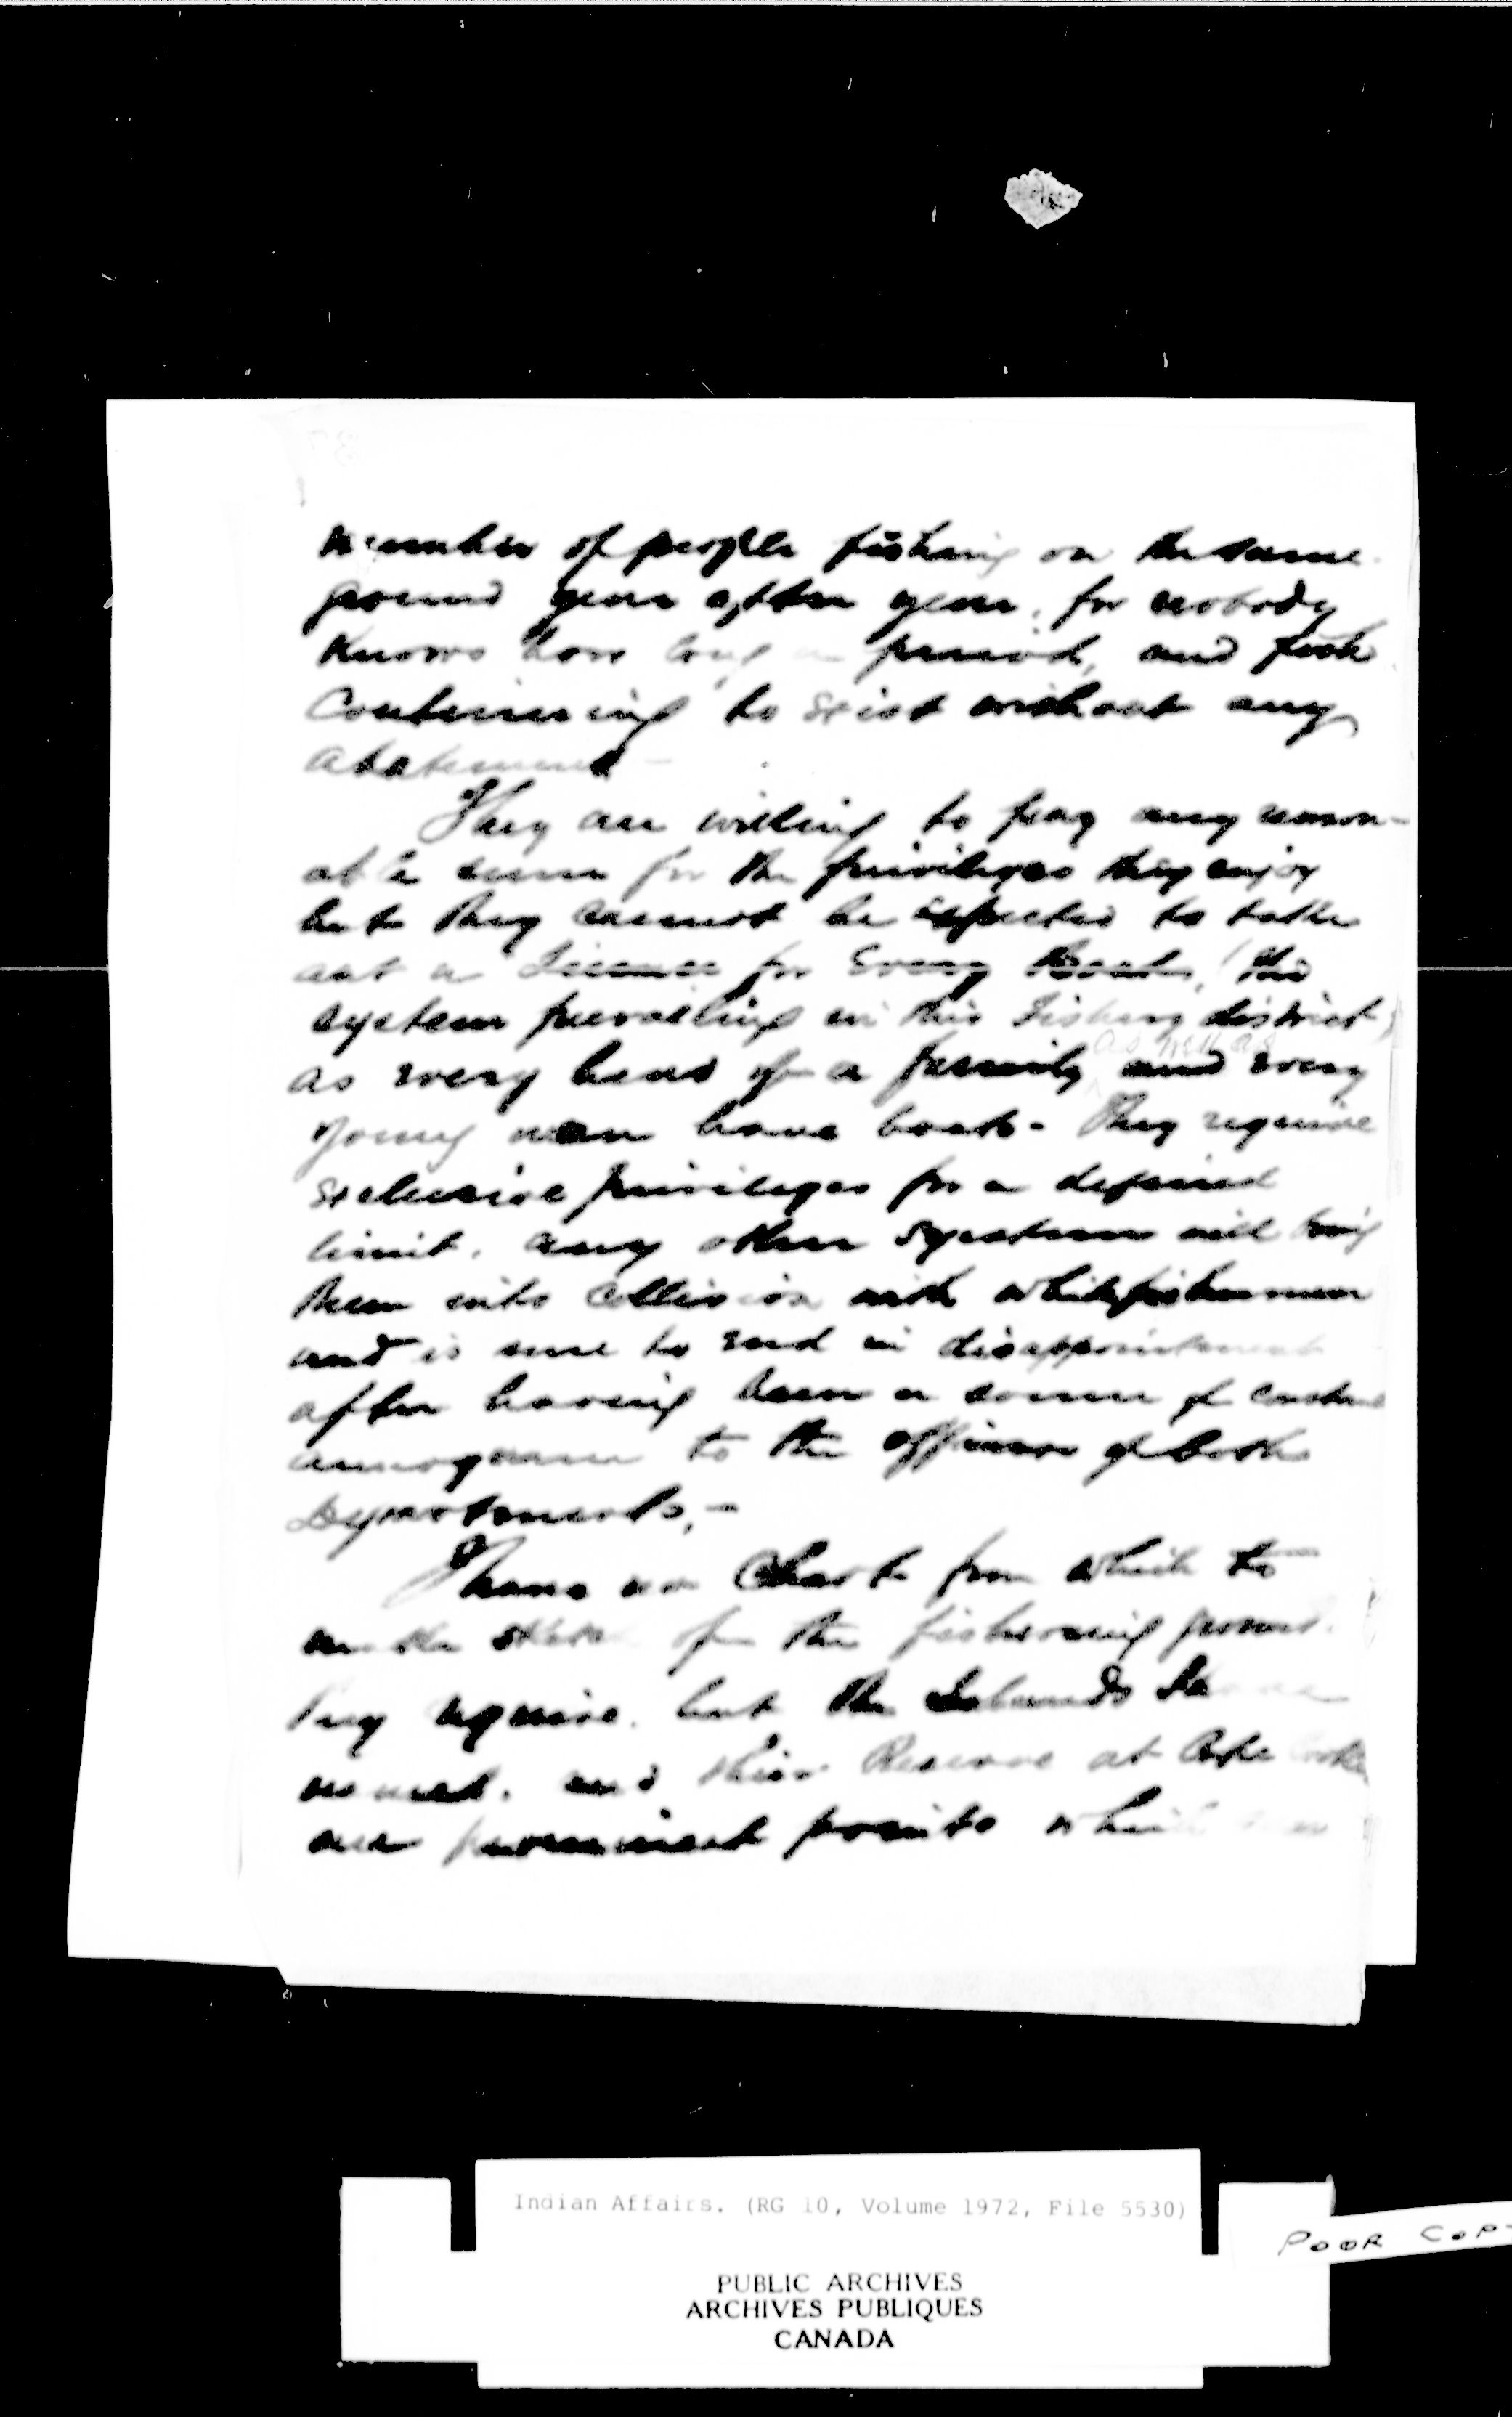 number of people fishing on the same
ground year after year, for nobody
knows how long a period, and fish
continuing to exist without any
abatement -
They are willing to pay any reason-
able sum for the privileges they enjoy
but they cannot be expected to take
out a License for Every Boat, (the
system prevailing in this Fishery district)
as well as
as every head of a family and every
young man have boats - They require
exclusive privileges for a defined
limit. any other system will bring
them into collision with white fishermen
and is sure to end in disappointment
after having been a source of constant
annoyance to the officers of both
Departments, -
I have no Chart from which to
make sketch of the fishering ground
they require. but the Islands I have
named. and their Reserve at Cape Croker
are prominent points which
Indian Affairs. (RG 10, Volume 1972, File 5530)
POOR COP
PUBLIC ARCHIVES
ARCHIVES PUBLIQUES
CANADA